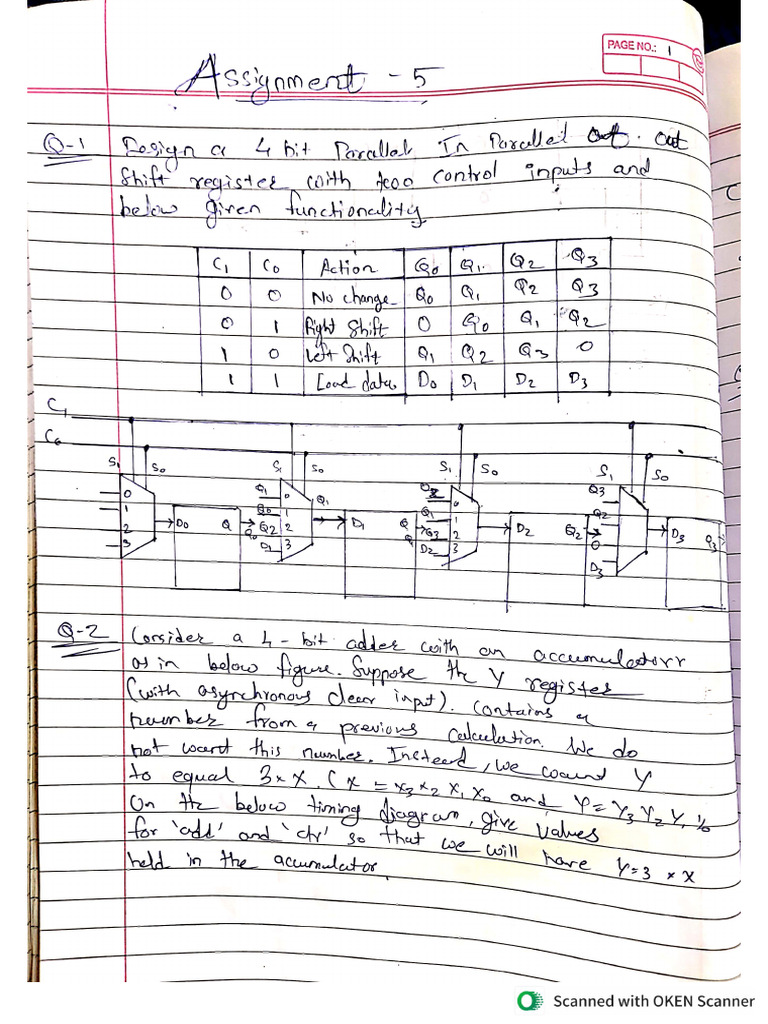 PAGE NO.: 1
Assignment - 5
Q-1 Design a 4 bit Parallel In Parallel out
Shift register with two control inputs and
below given functionality.
C1 C0 Action Q0 Q1 Q2 Q3
0 0 No change Q0 Q1 Q2 Q3
0 1 Right Shift 0 Q0 Q1 Q2
1 0 Left Shift Q1 Q2 Q3 0
1 1 Load data D0 D1 D2 D3
C1
C0
S1 S0 S1 S0 S1 S0 S1 S0
0 Q1 0 Q1 0 Q3
1 Q0 1 Q1 1 Q2
2 D0 Q Q2 2 D1 Q Q3 2 D2 Q2 0 D3 Q3
3 Q0 D1 3 D2 3 D3
Q-2 Consider a 4-bit adder with an accumulatorr
as in below figure. Suppose the Y register
(with asynchronous clear input). contains a
number from a previous calculation. We do
not want this number. Instead, we want Y
to equal 3 * X. ( X = X3 X2 X1 X0 and Y = Y3 Y2 Y1 Y0
On the below timing diagram, give values
for 'add' and 'clr' so that we will have Y=3 * X
held in the accumulator.
Scanned with OKEN Scanner